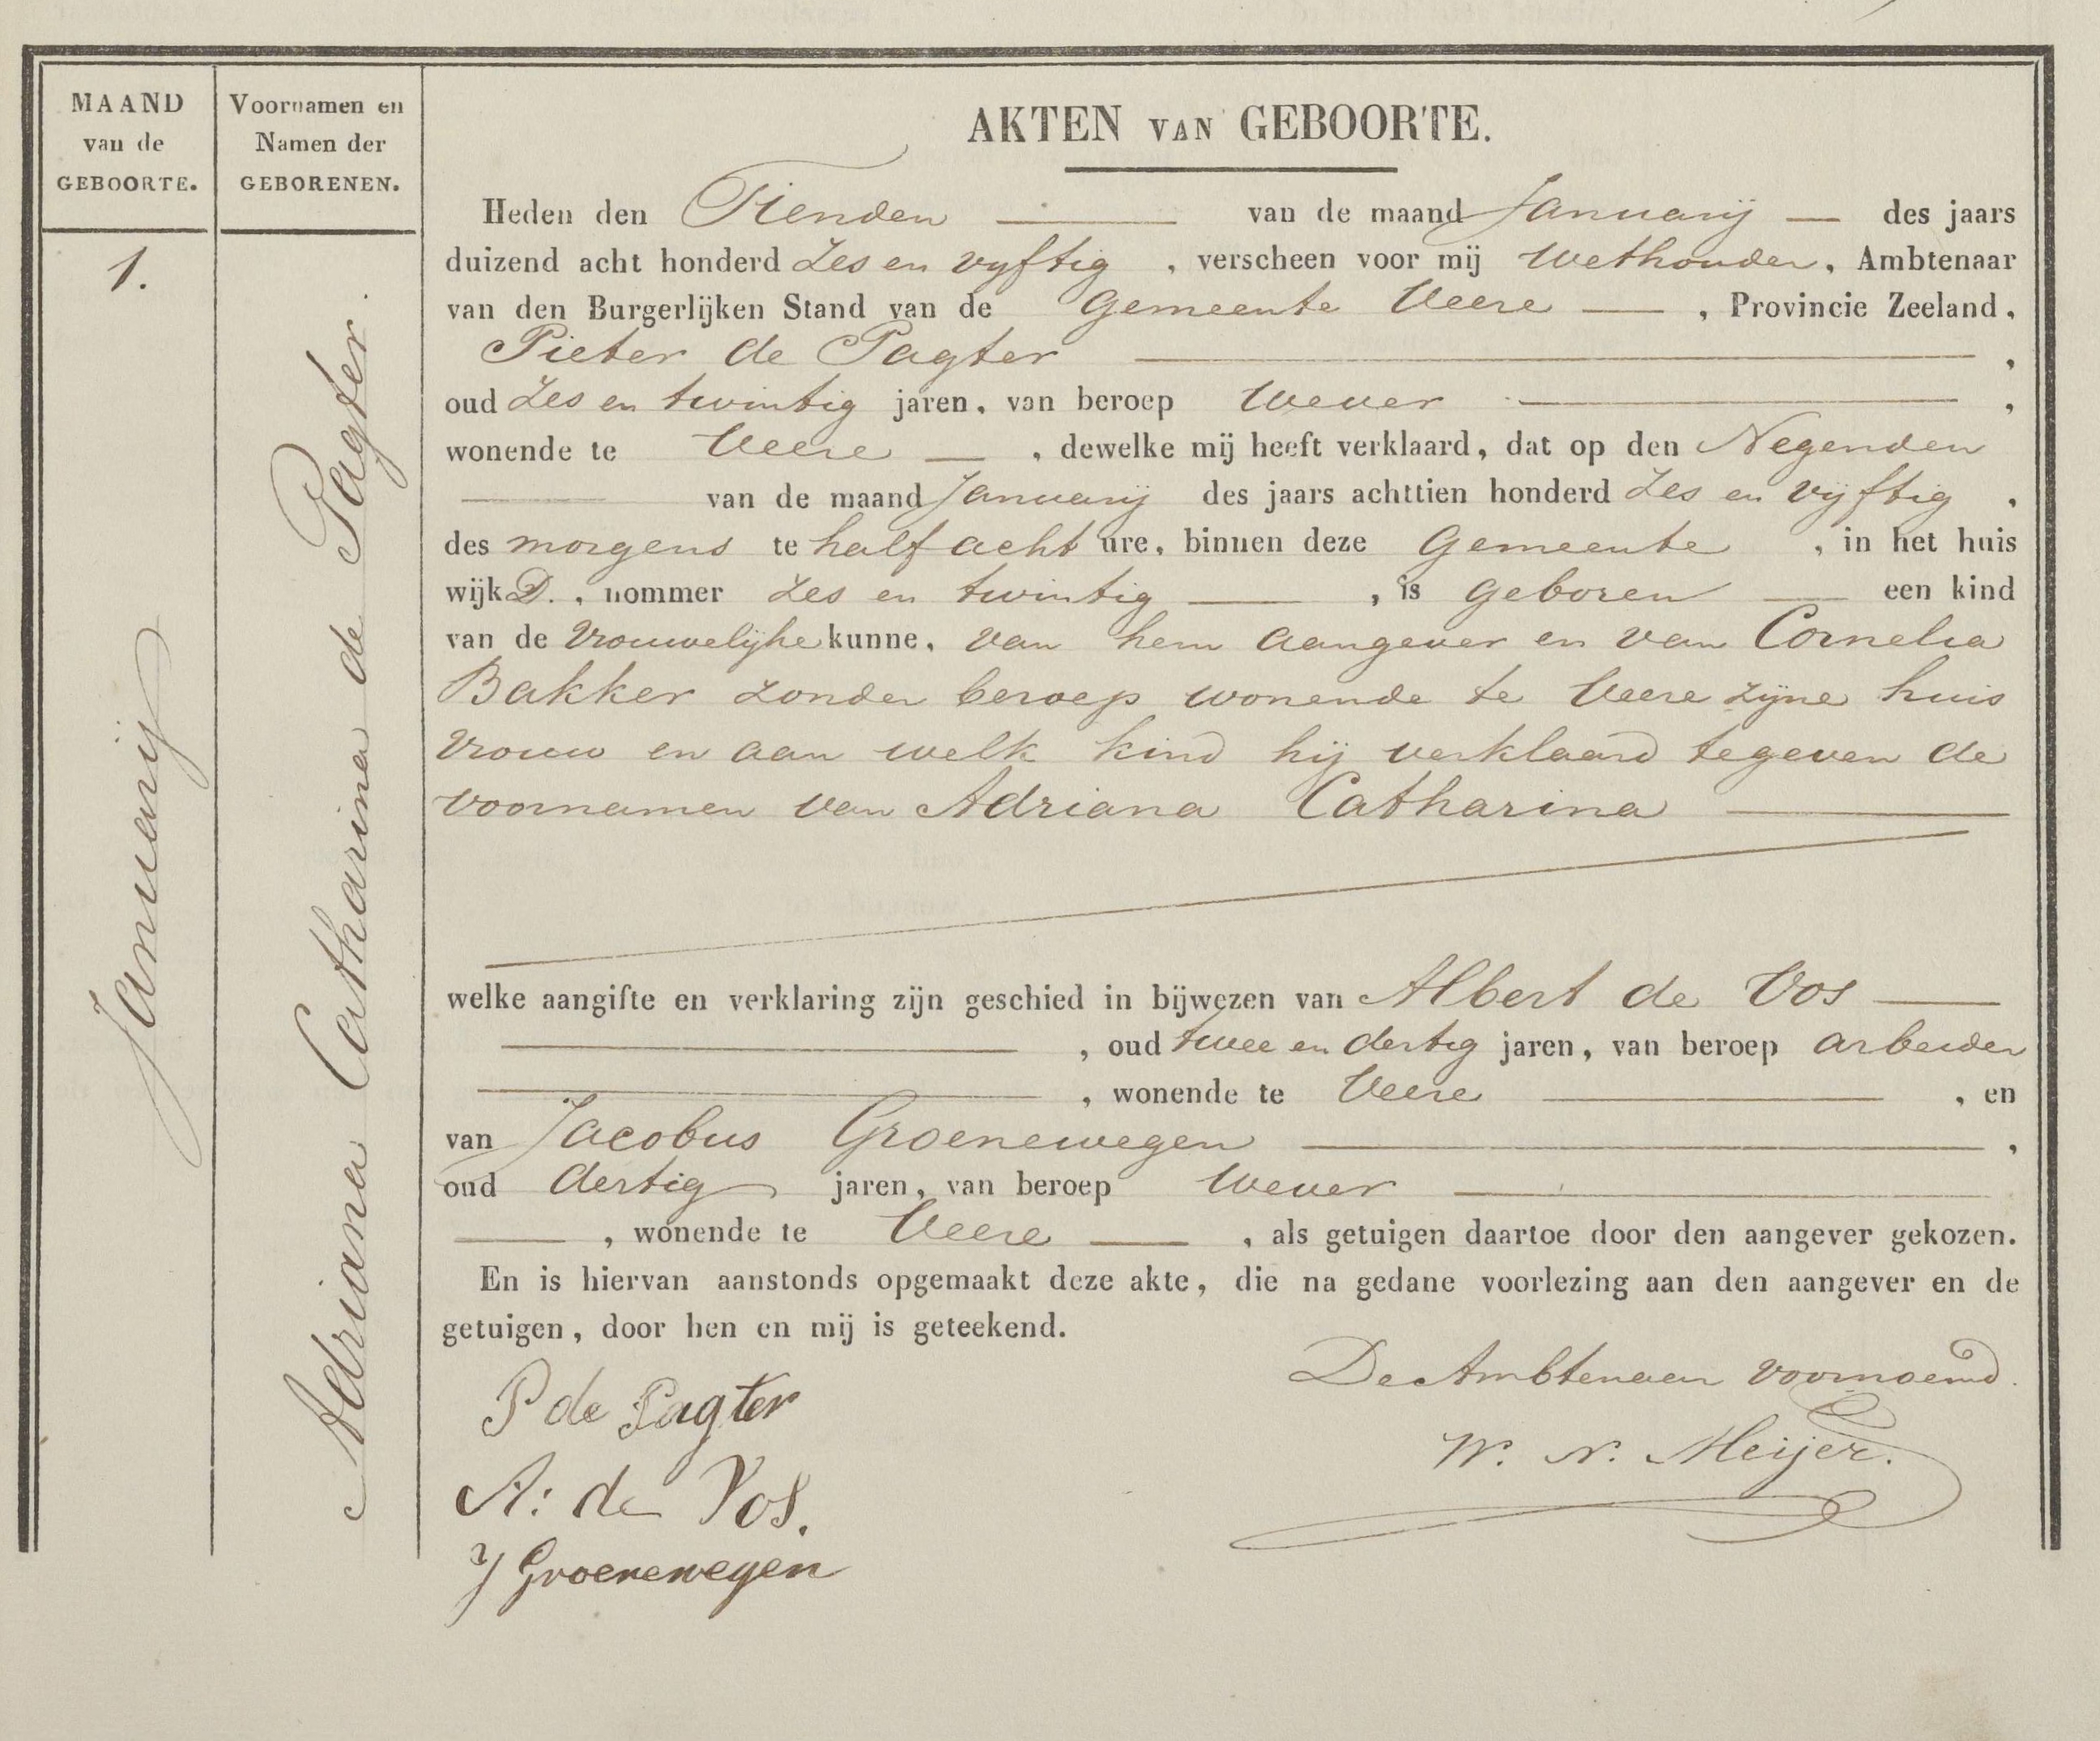 MAAND
van de
GEBOORTE.
Voornamen en
Namen der
GEBORENEN.
1.
Januarij
Adriana Catharina de Pagter.
AKTEN VAN GEBOORTE.
Heden den Tienden van de maand Januarij des jaars
duizend acht honderd Zes en vyftig, verscheen voor mij Wethouder, Ambtenaar
van den Burgerlijken Stand van de Gemeente Veere, Provincie Zeeland,
Pieter de Pagter,
oud Zes en twintig jaren, van beroep Wever,
wonende te Veere, dewelke mij heeft verklaard, dat op den Negenden
van de maand Januarij des jaars achttien honderd Zes en vyftig,
des morgens te half acht ure, binnen deze Gemeente, in het huis
wijk D., nommer Zes en twintig, is geboren een kind
van de Vrouwelijke kunne, van hem aangever en van Cornelia
Bakker zonder beroep wonende te Veere zijne huis
vrouw en aan welk kind hij verklaard tegeven de
voornamen van Adriana Catharina
welke aangifte en verklaring zijn geschied in bijwezen van Albert de Vos
, oud twee en dertig jaren, van beroep arbeider
, wonende te Veere, en
van Jacobus Groenewegen,
oud dertig jaren, van beroep Wever
, wonende te Veere, als getuigen daartoe door den aangever gekozen.
En is hiervan aanstonds opgemaakt deze akte, die na gedane voorlezing aan den aangever en de
getuigen, door hen en mij is geteekend.
De Ambtenaar voornoemd.
P de Pagter
W. N. Meijer.
A: de Vos.
J Groenewegen